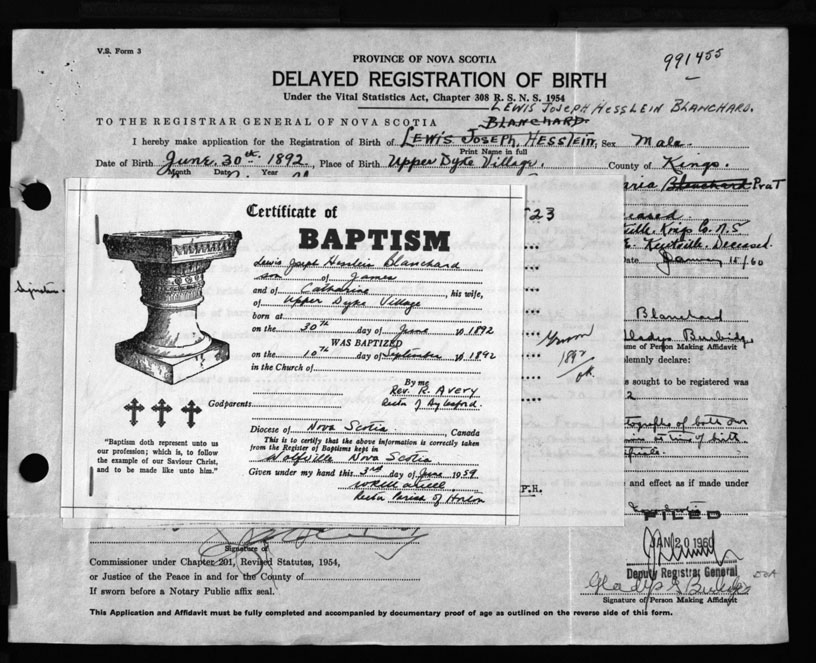 V.S. Form 3
991455
PROVINCE OF NOVA SCOTIA
DELAYED REGISTRATION OF BIRTH
Under the Vital Statistics Act, Chapter 308 R. S. N. S. 1954
LEWIS JOSEPH HESSLEIN BLANCHARD.
TO THE REGISTRAR GENERAL OF NOVA SCOTIA
BLANCHARD.
I hereby make application for the Registration of Birth of LEWIS JOSEPH, HESSLEIN, Sex Male.
Print Name in full
Date of Birth June. 30th. 1892., Place of Birth Upper Dyke Village. County of Kings.
Month Date Year
aria Blanchard Prat
523
eceased
Kings Co. N.S
Kentville. Deceased.
Date January 15/60
Blanchard
Gladys Burbidge
me of Person Making Affidavit
olemnly declare:
s sought to be registered was
2
at time of birth
and effect as if made under
F.R.
FILED
JAN 20 1960
Deputy Registrar General
Certificate of
BAPTISM
Lewis Joseph Hesslein Blanchard
son of James
and of Catharine, his wife,
of Upper Dyke Village
born at
on the 30th day of June 1892
WAS BAPTIZED
on the 10th day of September 1892
in the Church of
By me
Rev. R. Avery
Godparents Rector of Aylesford.
Diocese of Nova Scotia, Canada
This is to certify that the above information is correctly taken
from the Register of Baptisms kept in
Wolfville Nova Scotia
Given under my hand this 3rd day of June 1959
Rector Parish of Horton
"Baptism doth represent unto us
our profession; which is, to follow
the example of our Saviour Christ,
and to be made like unto him."
1892
Signature of
Commissioner under Chapter 201, Revised Statutes, 1954,
or Justice of the Peace in and for the County of
If sworn before a Notary Public affix seal.
Gladys Burbidge
Signature of Person Making Affidavit
This Application and Affidavit must be fully completed and accompanied by documentary proof of age as outlined on the reverse side of this form.